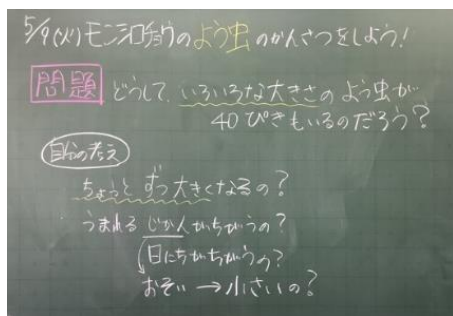 5/9(火)モンシロチョウのよう虫のかんさつをしよう！
問題 どうして、いろいろな大きさのよう虫が
40ぴきもいるのだろう？
自分の考え
ちょっとずつ大きくなるの？
うまれるじかんがちがうの？
日にちがちがうの？
おそい→小さいの？